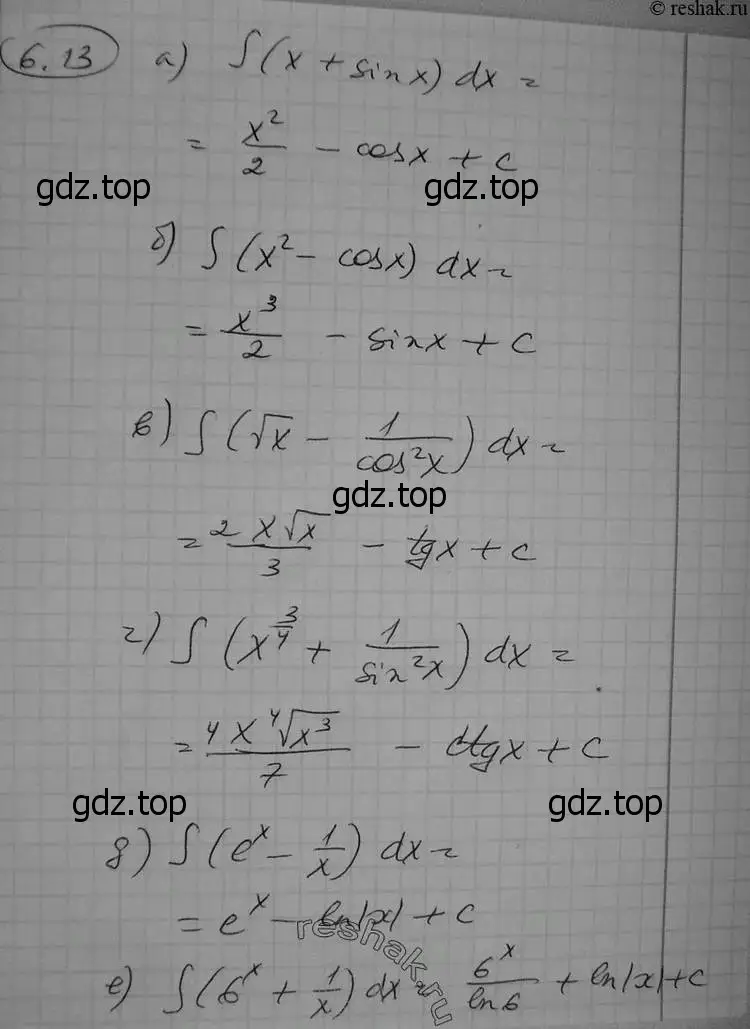 © reshak.ru
6.13 а) ∫(x + sin x) dx =
= x²/2 - cos x + c
gdz.top gdz.top
б) ∫(x² - cos x) dx =
= x³/2 - sin x + c
в) ∫(√x - 1/cos²x) dx =
gdz.top
= 2x√x/3 - tg x + c
г) ∫(x^(3/4) + 1/sin²x) dx =
= 4x ⁴√x³/7 - ctg x + c
gdz.top gdz.top
д) ∫(e^x - 1/x) dx =
= e^x - ln|x| + c
reshak.ru
е) ∫(6^x + 1/x) dx = 6^x/ln 6 + ln|x| + c